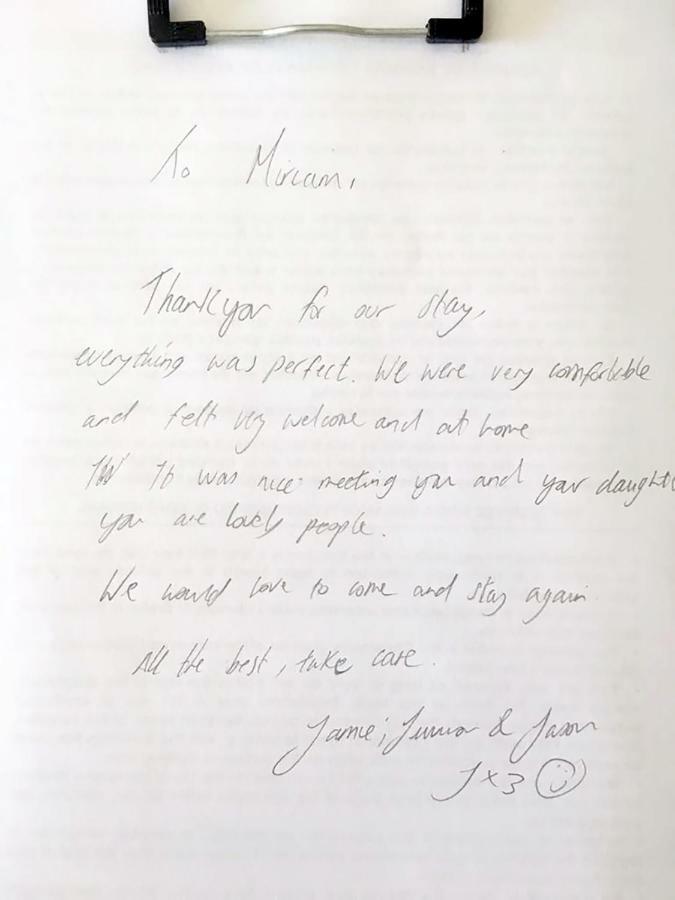 To Miriam,
Thankyou for our stay,
everything was perfect. We were very comfortable
and felt very welcome and at home
It was nice meeting you and your daughte
you are lovely people.
We would love to come and stay again.
All the best, take care.
Jamie, Junior & Jason
J x 3